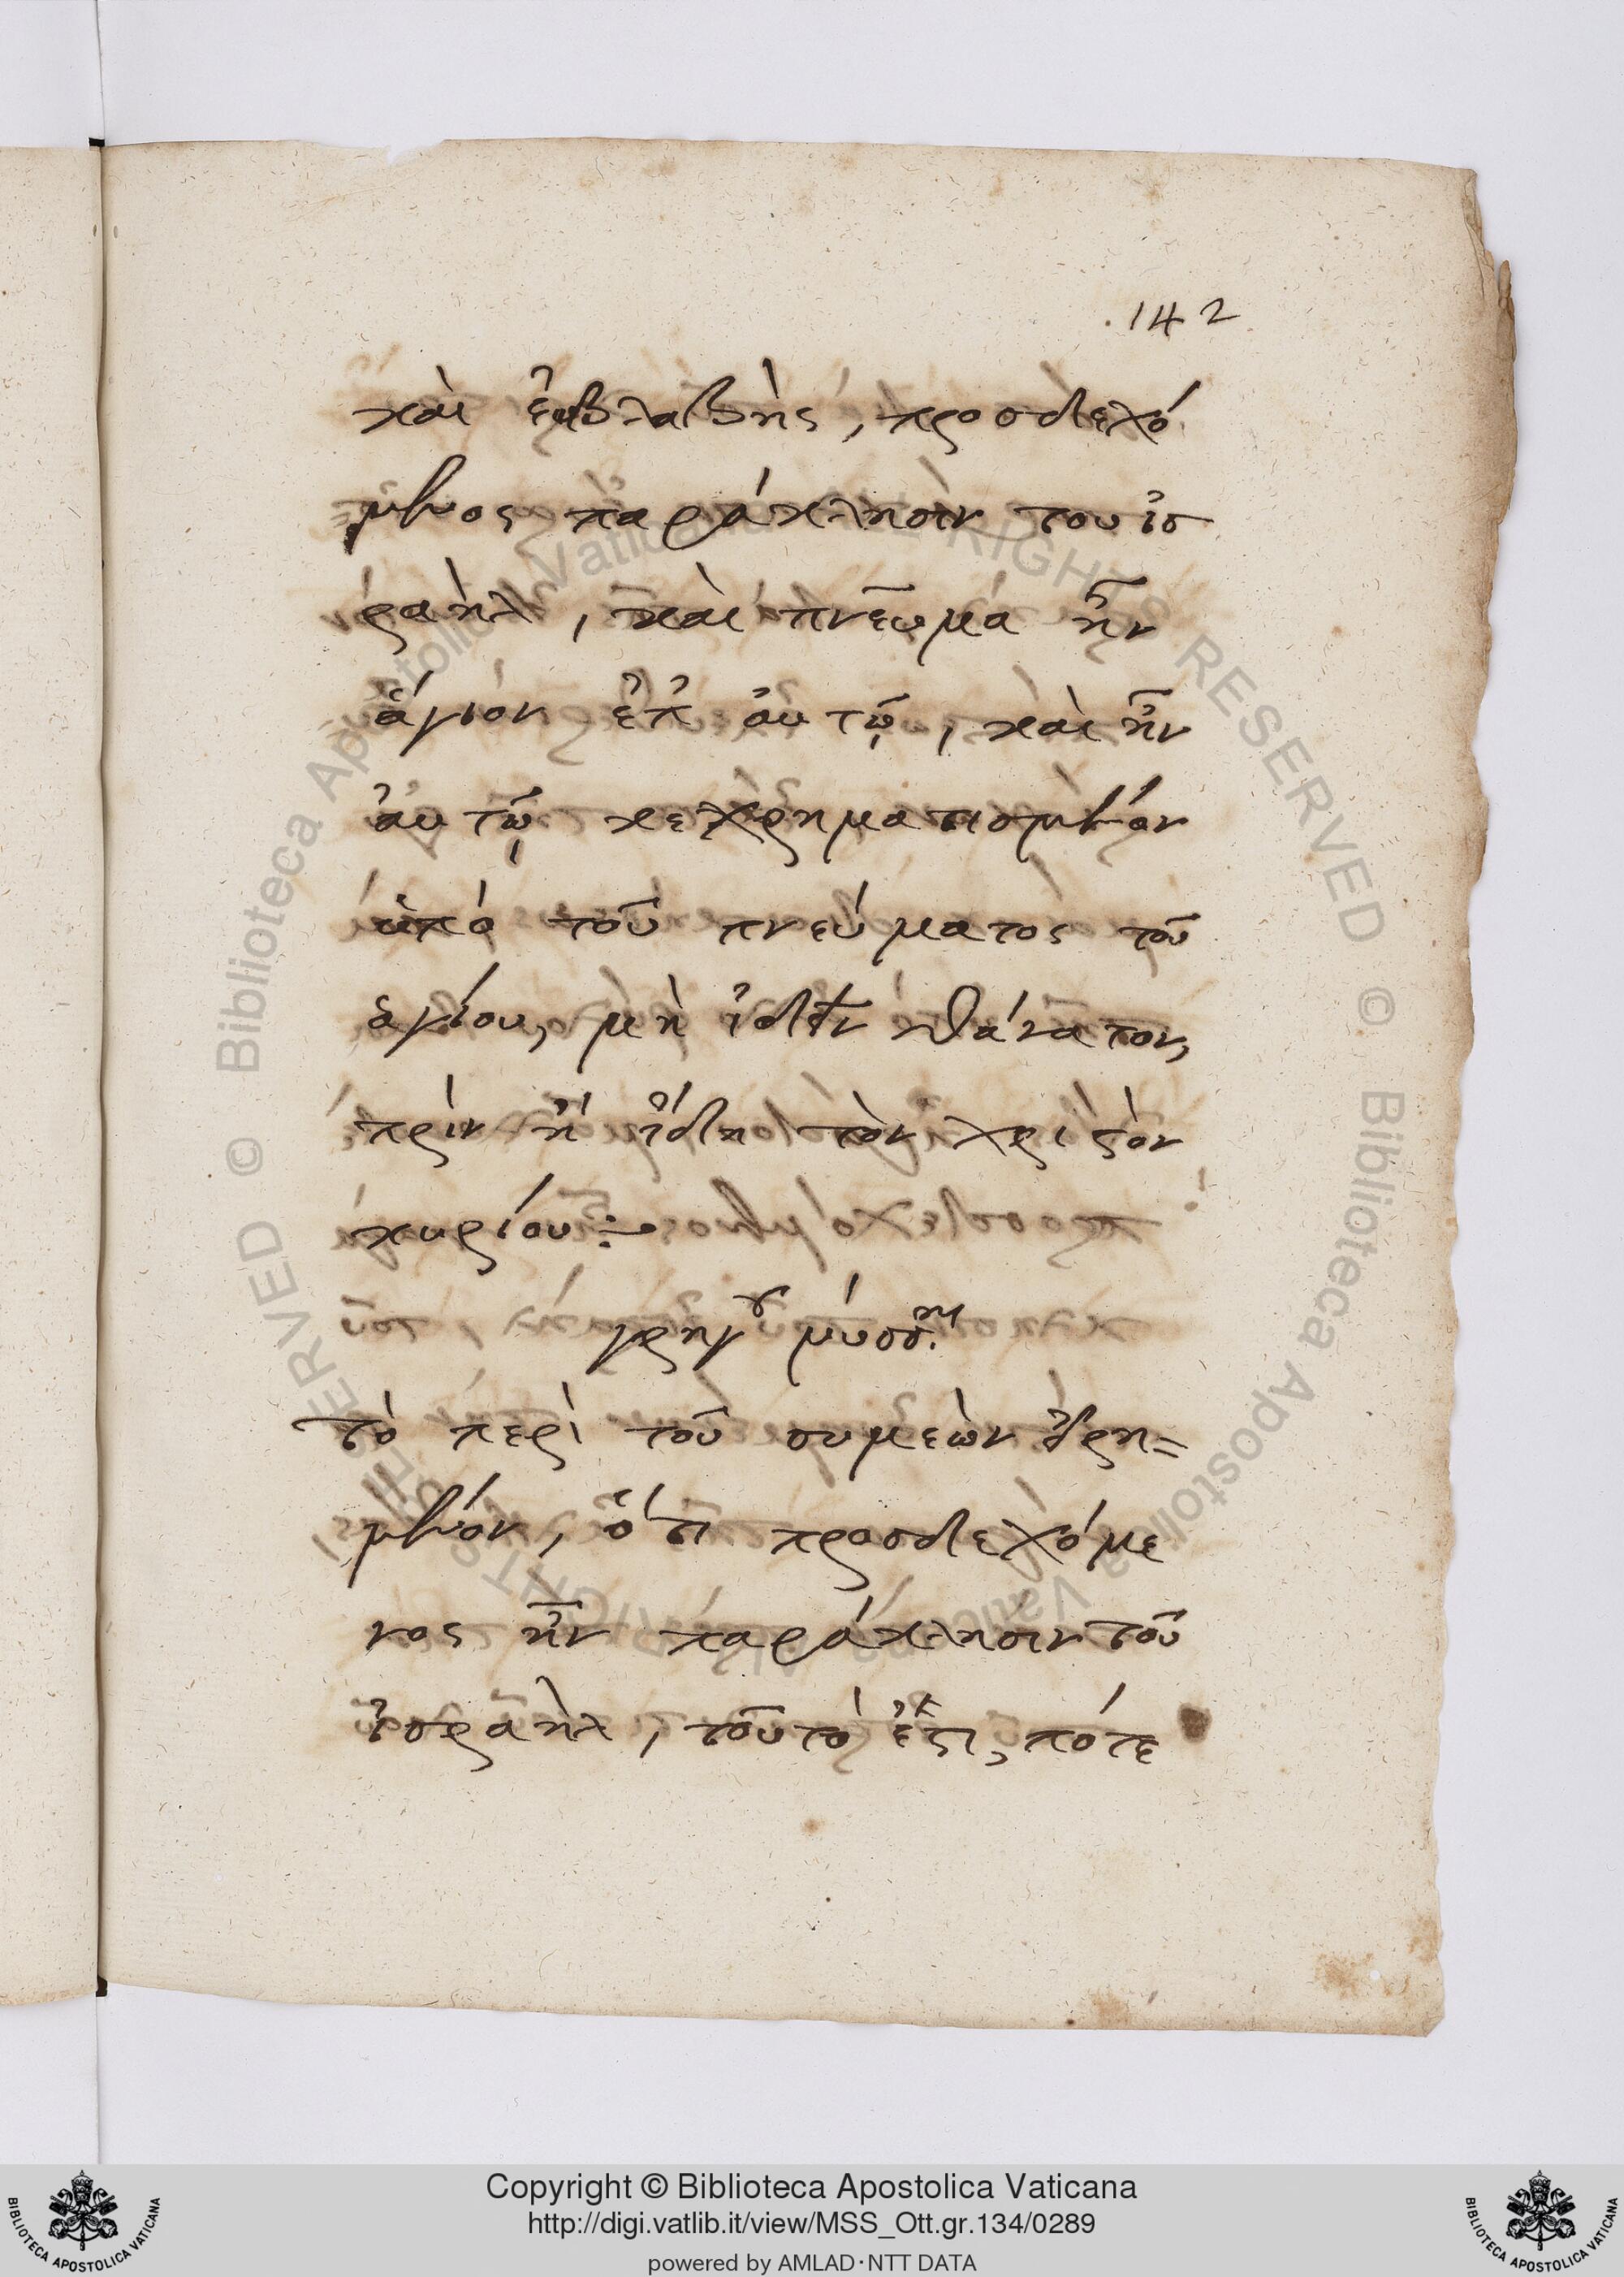 142
καὶ ἐυλαβὴς, προσδεχό
μενος παράκλησιν του ἰσ
ραὴλ, καὶ πνεῦμα ἦν
ἅγιον ἐπ' ἀυτῷ, καὶ ἦν
ἀυτῷ κεχρηματισμένον
ὑπὸ τοῦ πνεύματος τοῦ
ἁγίου, μὴ ἰδεῖν θάνατον,
πρὶν ἢ ἴδη τὸν χριστὸν
κυρίου :~
γρηγ μύσσ
Τὸ περὶ τοῦ συμεὼν ἐιρη=
μένον, ὅτι προσδεχόμε
νος ἦν παράκλησιν τοῦ
ἰσραὴλ, τοῦτό ἐστι, πότε
Biblioteca Apostolica Vaticana ALL RIGHTS RESERVED ©
Biblioteca Apostolica Vaticana ALL RIGHTS RESERVED ©
Copyright © Biblioteca Apostolica Vaticana
http://digi.vatlib.it/view/MSS_Ott.gr.134/0289
powered by AMLAD·NTT DATA
BIBLIOTECA APOSTOLICA VATICANA
BIBLIOTECA APOSTOLICA VATICANA